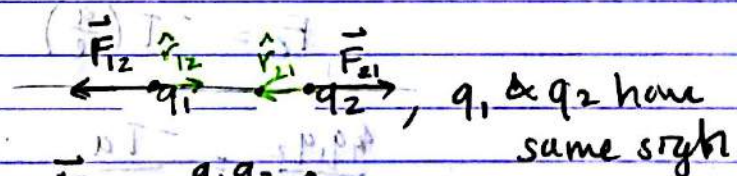 F⃗₁₂ r̂₁₂ r̂₂₁ F⃗₂₁
q₁ q₂ , q₁ & q₂ have
same sign
q₁q₂